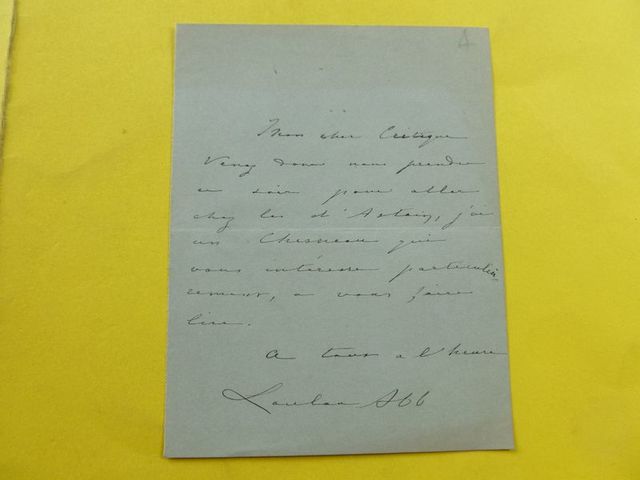 Mon cher Critique
Venez donc nous prendre
ce soir pour aller
chez les d'Astoin, j'ai
un Chesneau qui
vous intéresse particuliè-
rement, a vous faire
lire.
A tout a l'heure
Louise Abb